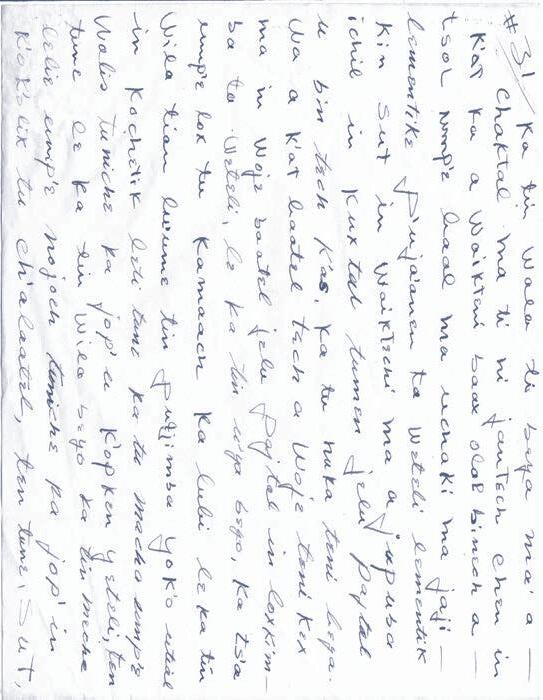 #31 Ka tin Wala ti beya ma' a —
chaktal ma ti ni jantech chen in
K'at ka a Waikteni baax olal binech a —
tsol nump'e baal ma uchaki ma jaji —
lementike P'ujaanen ka Weteli lementik
Kin Sut in Waiktechi ma a jupuba
ichil in Kuxtal tumen jelu paytal
u bin tech kas, ka tu nuka teni beya.
Wa a K'at baatel tech a Woje teni kex
ma in Woje baatel jelu paytal in loxkim-
ba ta Weteli, le ka tin uya beyo, Ka tsa
ump'e lox tu Kamaach ka lubi le ka tin
Wila tian luume tin putjimba yok'o utial
in Kochetik leti tune ka tu macha ump'e
Walis tuniche ka jop'u K'opken yeteli, ten
tune le ka tin Wila beyo ka tin mecha
lelie ump'e nojoch tuniche ka jop' in
K'ok'olik tu ch'alaatel, ten tune, Sut,